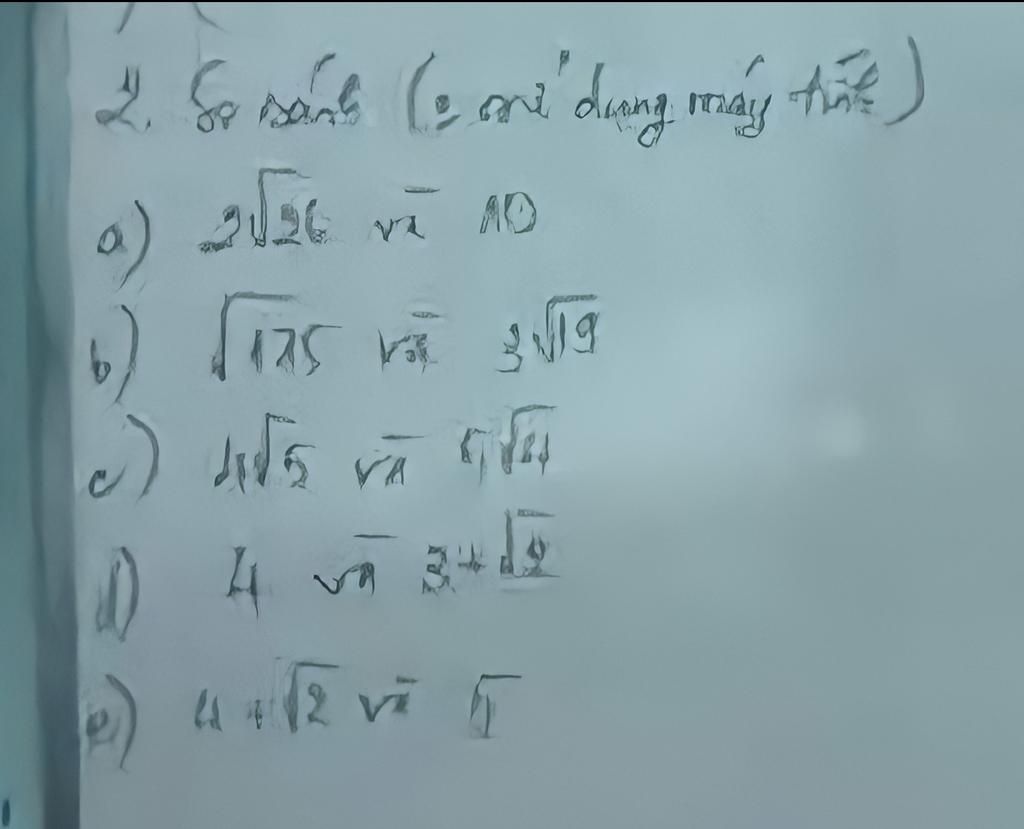 2. So sánh ( sử dụng máy tính)
a) 2√26 và 10
b) √175 và 3√19
c) 4√5 và 5√4
d) 4 và 3+√2
e) 4 + √2 và